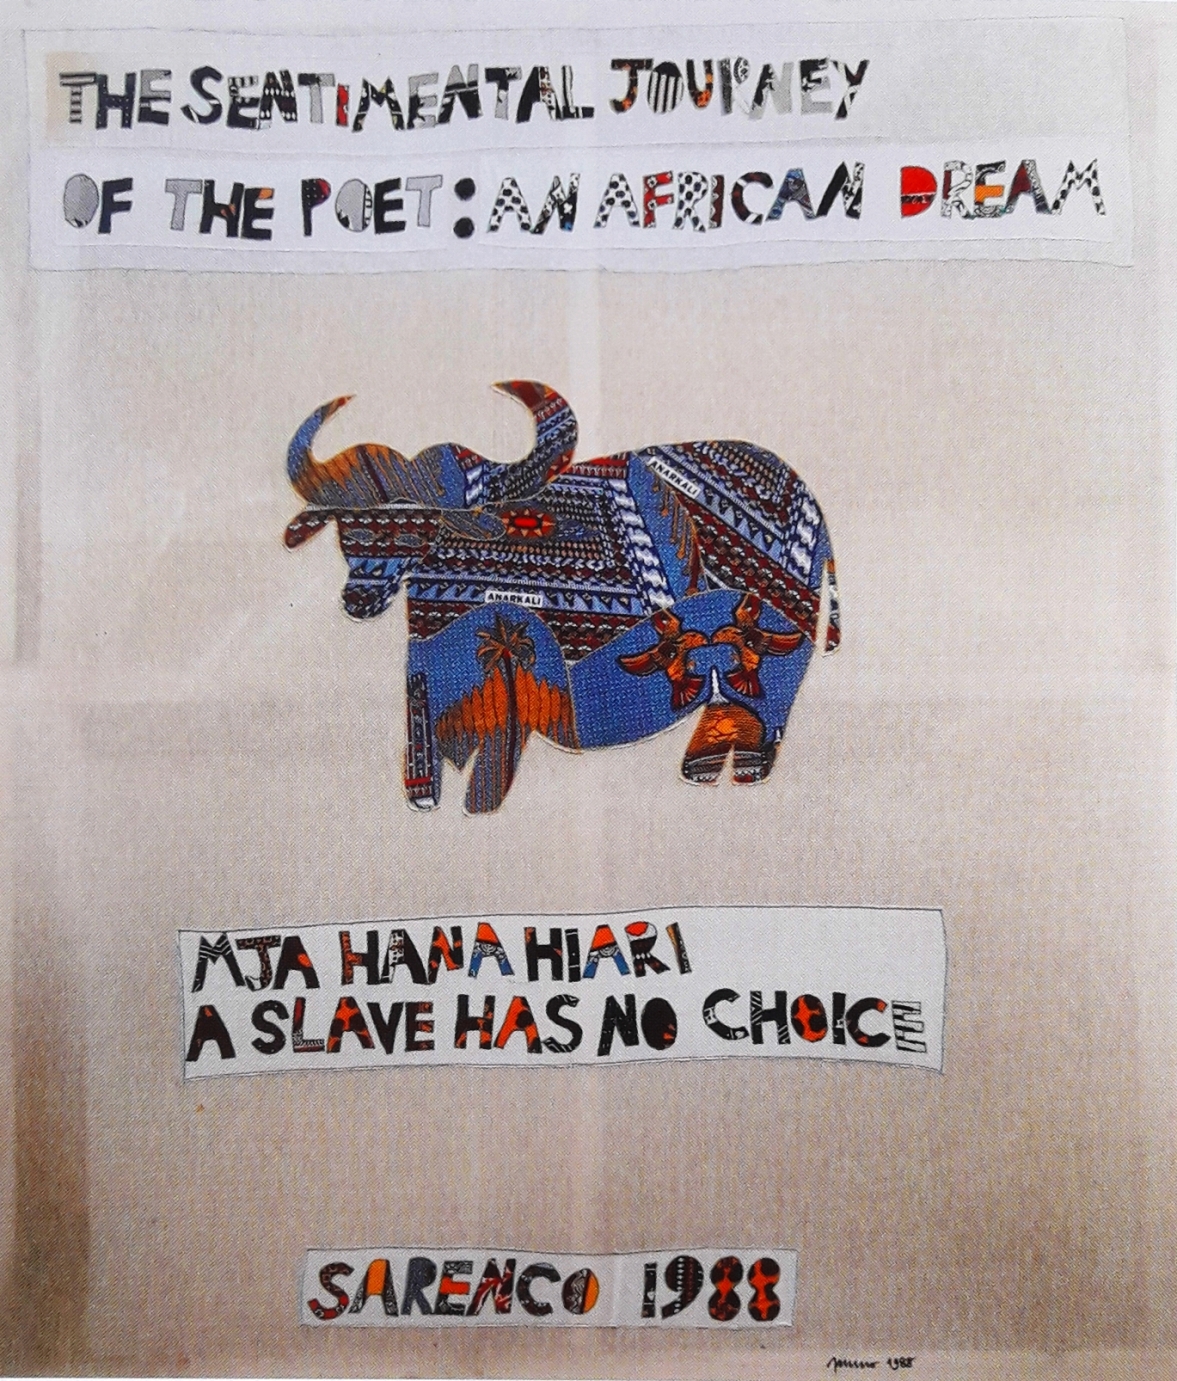 THE SENTIMENTAL JOURNEY
OF THE POET: AN AFRICAN DREAM
ANARKALI
ANARKALI
MJA HANA HIARI
A SLAVE HAS NO CHOICE
SARENCO 1988
1988